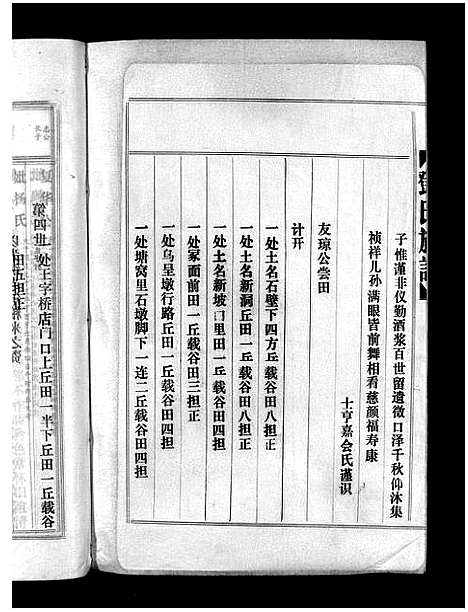 鄧氏族譜
子惟谨非仪勤酒浆百世留遗徽口泽千秋仰沐集
祯祥儿孙满眼皆前舞相看慈颜福寿康
士亨嘉会氏谨识
友琼公尝田
计开
一处土名石壁下四方丘载谷田八担正
一处土名新洞丘田一丘载谷田八担正
一处土名新坡口里田一丘载谷田四担
一处冢面前田一丘载谷田三担正
一处乌呈墩行路丘田一丘载谷田四担
一处塘窝里石墩脚下一连二丘载谷田四担
一处王字桥店门口上丘田一半下丘田一丘载谷
田五担正
杨氏